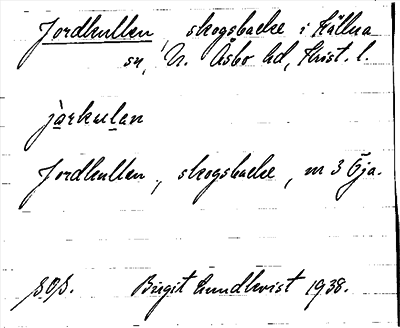 Jordkullen, skogsbacke i Källna
sn, N. Åsbo hd, Krist. l.
jàrkulan
Jordkullen, skogsbacke, m 3 Öja.
s. 0 s. Birgit Lundkvist 1938.